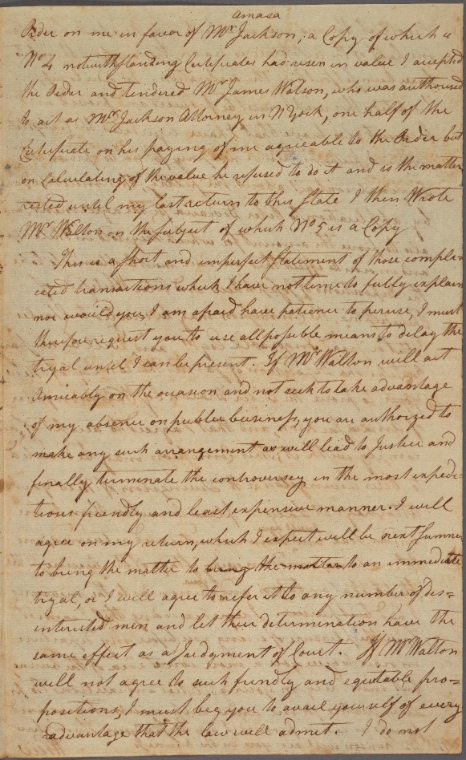 Amasa
Order on me in favor of Mr. Jackson; a Copy of which is
No 4 notwithstanding Certificates had risen in value I accepted
the Order and tendered Mr James Watson, who was authorised
to act as Mr Jackson Attorney, in N York, one half of the
Certificate on his paying of me agreeable to the Order but
on Calculating of the value he refused to do it and so the matter
rested until my last return to this State I then Wrote
Mr Walton on the subject of which No 5 is a Copy
This is a short and imperfect statement of those compli=
cated transactions which I have not time to fully explain
nor would you, I am afraid have patience to peruse, I must
therefore request you to use all possible means to delay the
tryal until I can be present. If Mr Walton will act
Amicably on the occasion and not seek to take advantage
of my absence on public business, you are authorized to
make any such arrangement as will lead to Justice and
finally terminate the controversy in the most expedi=
tious friendly and least expensive manner. I will
agree on my return, which I expect will be next summer
to bring the matter to bring the matter to an immediate
tryal, or I will agree to refer it to any number of dis=
interested men and let their determination have the
same effect as a Judgment of Court. If Mr Walton
will not agree to such friendly and equitable pro=
positions, I must beg you to avail yourself of every
advantage that the law will admit. I do not